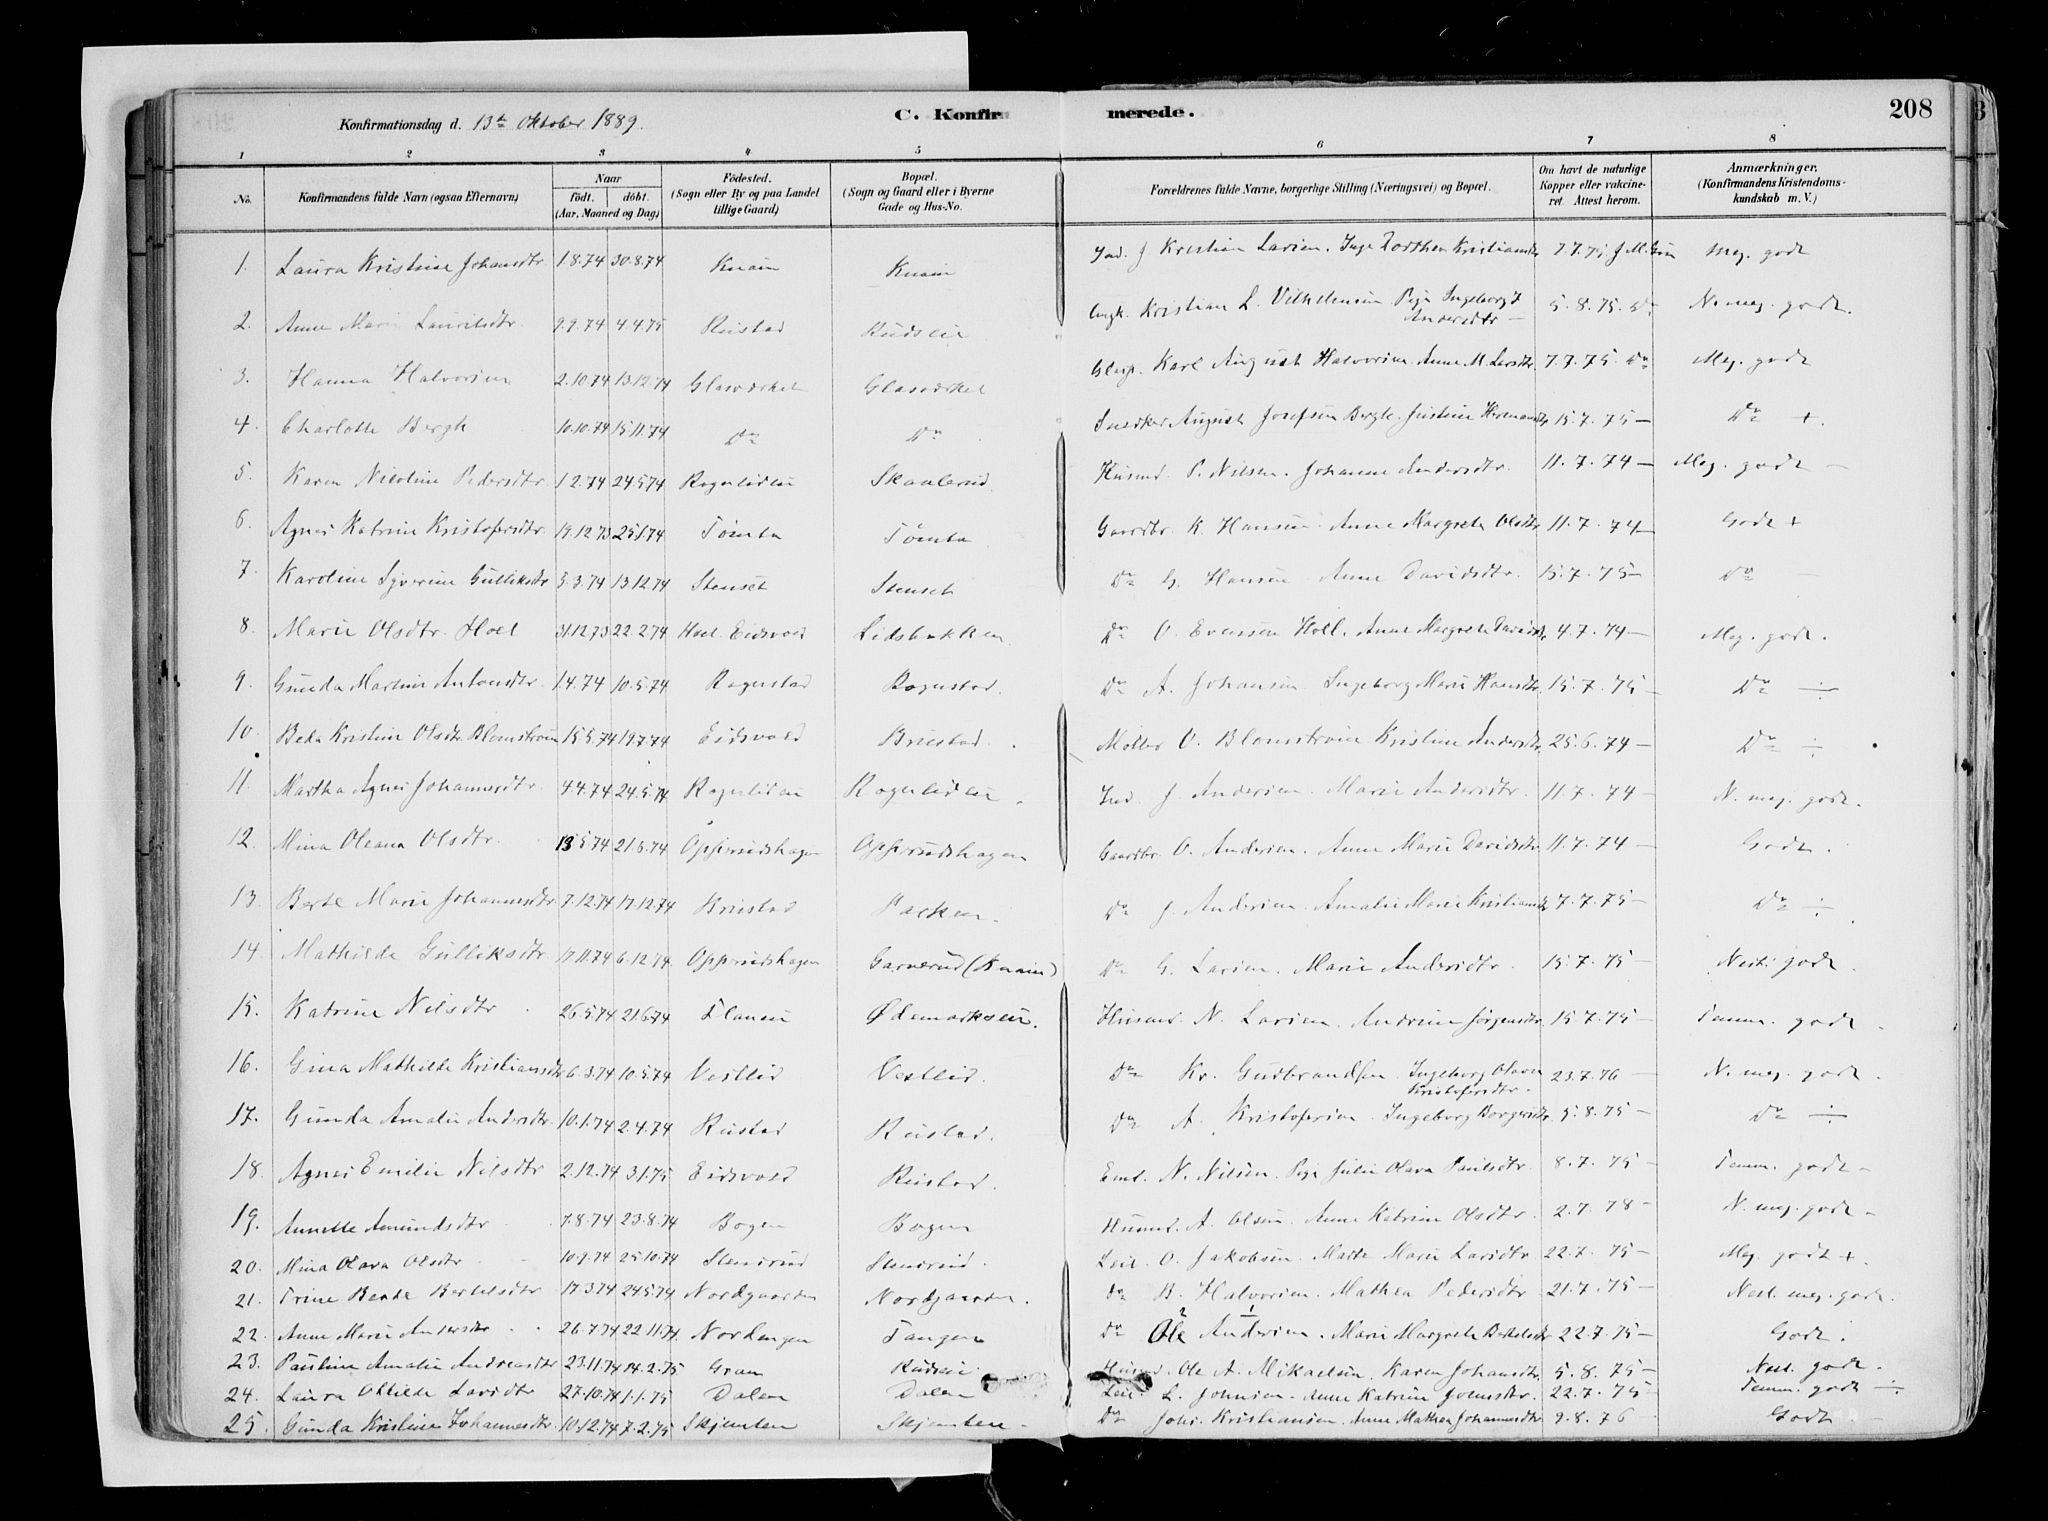 Konfirmationsdag d. 13de Oktober 1889.
C. Konfir merede.
208
1 2 3 4 5 6 7 8
No.
Konfirmandens fulde Navn (ogsaa Efternavn)
Naar
födt. döbt.
(Aar, Maaned og Dag)
Födested.
(Sogn eller By og paa Landet
tillige Gaard)
Bopæl.
(Sogn og Gaard eller i Byerne
Gade og Hus-No.
Forældrenes fulde Navne, borgerlige Stilling (Næringsvei) og Bopæl.
Om havt de naturlige
Kopper eller vakcine-
ret. Attest herom.
Anmærkninger.
(Konfirmandens Kristendoms-
kundskab m. V.)
1. Laura Kristine Johansdtr 1.8.74 30.8.74 Knain Knain Ind. J Kristian Larsen. Inge Dorthea Kristiansdtr 7.7.75 J. M. Meg. godt
2. Anne Marie Lauritsdtr. 9.9.74 4.4.75 Rustad Rudseie Ungk. Kristian L. Vilhelmsen. Pige Ingeborg J Andersdtr 5.8.75. Do N. meg. godt.
3. Hanna Halvorsen 2.10.74 13.12.74 Glasværket Glasværket Glasp. Karl August Halvorsen. Anne M. Larsdtr. 7.7.75. Do Meg. godt
4. Charlotte Bergh 10.10.74 15.11.74 Do Do Snedker August Josefsen Bergh. Justine Hermansdtr 15.7.75 — Do +.
5. Karen Nicoline Pedersdtr. 1.2.74 24.5.74 Rognlideie Skaalerud Husmd. P. Nilsen. Johanne Andersdtr. 11.7.74 — Meg. godt —
6. Agnes Katrine Kristofersdtr. 19.12.73 25.1.74 Tømta Tømta Gaardbr. K. Hansen. Anne Margrete Olsdtr 11.7.74 — Godt +
7. Karoline Syverine Gulliksdtr 5.3.74 13.12.74 Stenset Stenset Do G. Hansen Anne Davidsdtr. 15.7.75 — Do —
8. Marie Olsdtr. Hoel 31.12.73 22.2.74 Hoel. Eidsvold Lidsbakken Do O. Evensen Hoel. Anne Margrete Davidsdtr 4.7.74 — Meg. godt.
9. Gunda Martine Antonsdtr. 1.4.74 10.5.74 Rognstad Rognstad. Do A. Johansen. Ingeborg Marie Hansdtr. 15.7.75 — Do ÷
10. Beda Kristine Olsdtr Blomstrøm 15.5.74 19.7.74 Eidsvold Brustad. Møller O. Blomstrøm Kristine Andersdtr 25.6.74 — Do ÷
11. Martha Agnes Johannesdtr. 4.4.74 24.5.74 Rognlideie Rognlideie. Ind. J. Andersen. Marie Andersdtr. 11.7.74 — N. meg. godt.
12. Mina Oleana Olsdtr. 13.5.74 21.6.74 Oppsrudshagen Oppsrudshagen Gaardbr. O. Andersen. Anne Marie Davidsdtr 11.7.74 — Godt.
13. Berte Marie Johannesdtr 7.12.74 17.12.74 Brustad Parken. Do J. Andersen. Amalie Marie Kristiansdtr 7.7.75 — Do ÷
14. Mathilde Gulliksdtr. 17.11.74 6.12.74. Oppsrudshagen Garnerud (Knain) Do G. Larsen. Marie Andersdtr. 15.7.75 — Nest. godt.
15. Katrine Nilsdtr 26.5.74 21.6.74 Flaneie Ødemarkseie. Husmd. N. Larsen. Andrine Jørgensdtr 15.7.75 — Temm. godt.
16. Gina Mathilde Kristiansdtr 6.3.74 10.5.74 Vestlid Vestlid. Do Kr. Gudbrandsen. Ingeborg Olava Kristofersdtr. 23.7.76 — N. meg. godt.
17. Gunda Amalie Andersdtr. 10.1.74 2.4.74 Rustad Rustad. Do A. Kristofersen. Ingeborg Borgersdtr 5.8.75 — Do ÷
18. Agnes Emilie Nilsdtr 2.12.74 3.1.75 Eidsvold Rustad. Enl. N. Nilsen. Pige Julie Olava Paulsdtr. 8.7.75 — Temm. godt —
19. Annette Amundsdtr 7.8.74 23.8.74 Bogen Bogen Husmd. A. Olsen. Anne Katrine Olsdtr. 2.7.78 — N. meg. godt —
20. Mina Olava Olsdtr 10.9.74 25.10.74 Stensrud Stensrud. Leil. O. Jakobsen. Marte Marie Larsdtr. 22.7.75 — Meg. godt +.
21. Trine Beate Bertelsdtr 17.3.74 24.5.74 Nordgaarden Nordgaarden. Do B. Halvorsen. Mathea Pedersdtr 21.7.75 — Nest. meg. godt.
22. Anne Marie Andersdtr 26.7.74 22.11.74. Nordengen Tangen Do 2 Ole 1 Andersen. Marie Margrete Bertelsdtr 22.7.75 — Godt.
23. Pauline Amalie Andreasdtr 23.11.74 14.2.75 Gran Rudseie Husmd. Ole A. Mikaelsen. Karen Johansdtr. 5.8.75 — Nest. godt.
24. Laura Ottilde Larsdtr 27.10.74 1.1.75 Dalen Dalen Leil. L. Johnsen. Anne Katrine Joensdtr. 22.7.75 — Temm. godt ÷
25. Gunda Kristine Johannesdtr. 10.12.74 7.2.75 Skjønten Skjønten Do Johs. Kristiansen. Anne Mathea Johannesdtr 9.8.76 Godt —